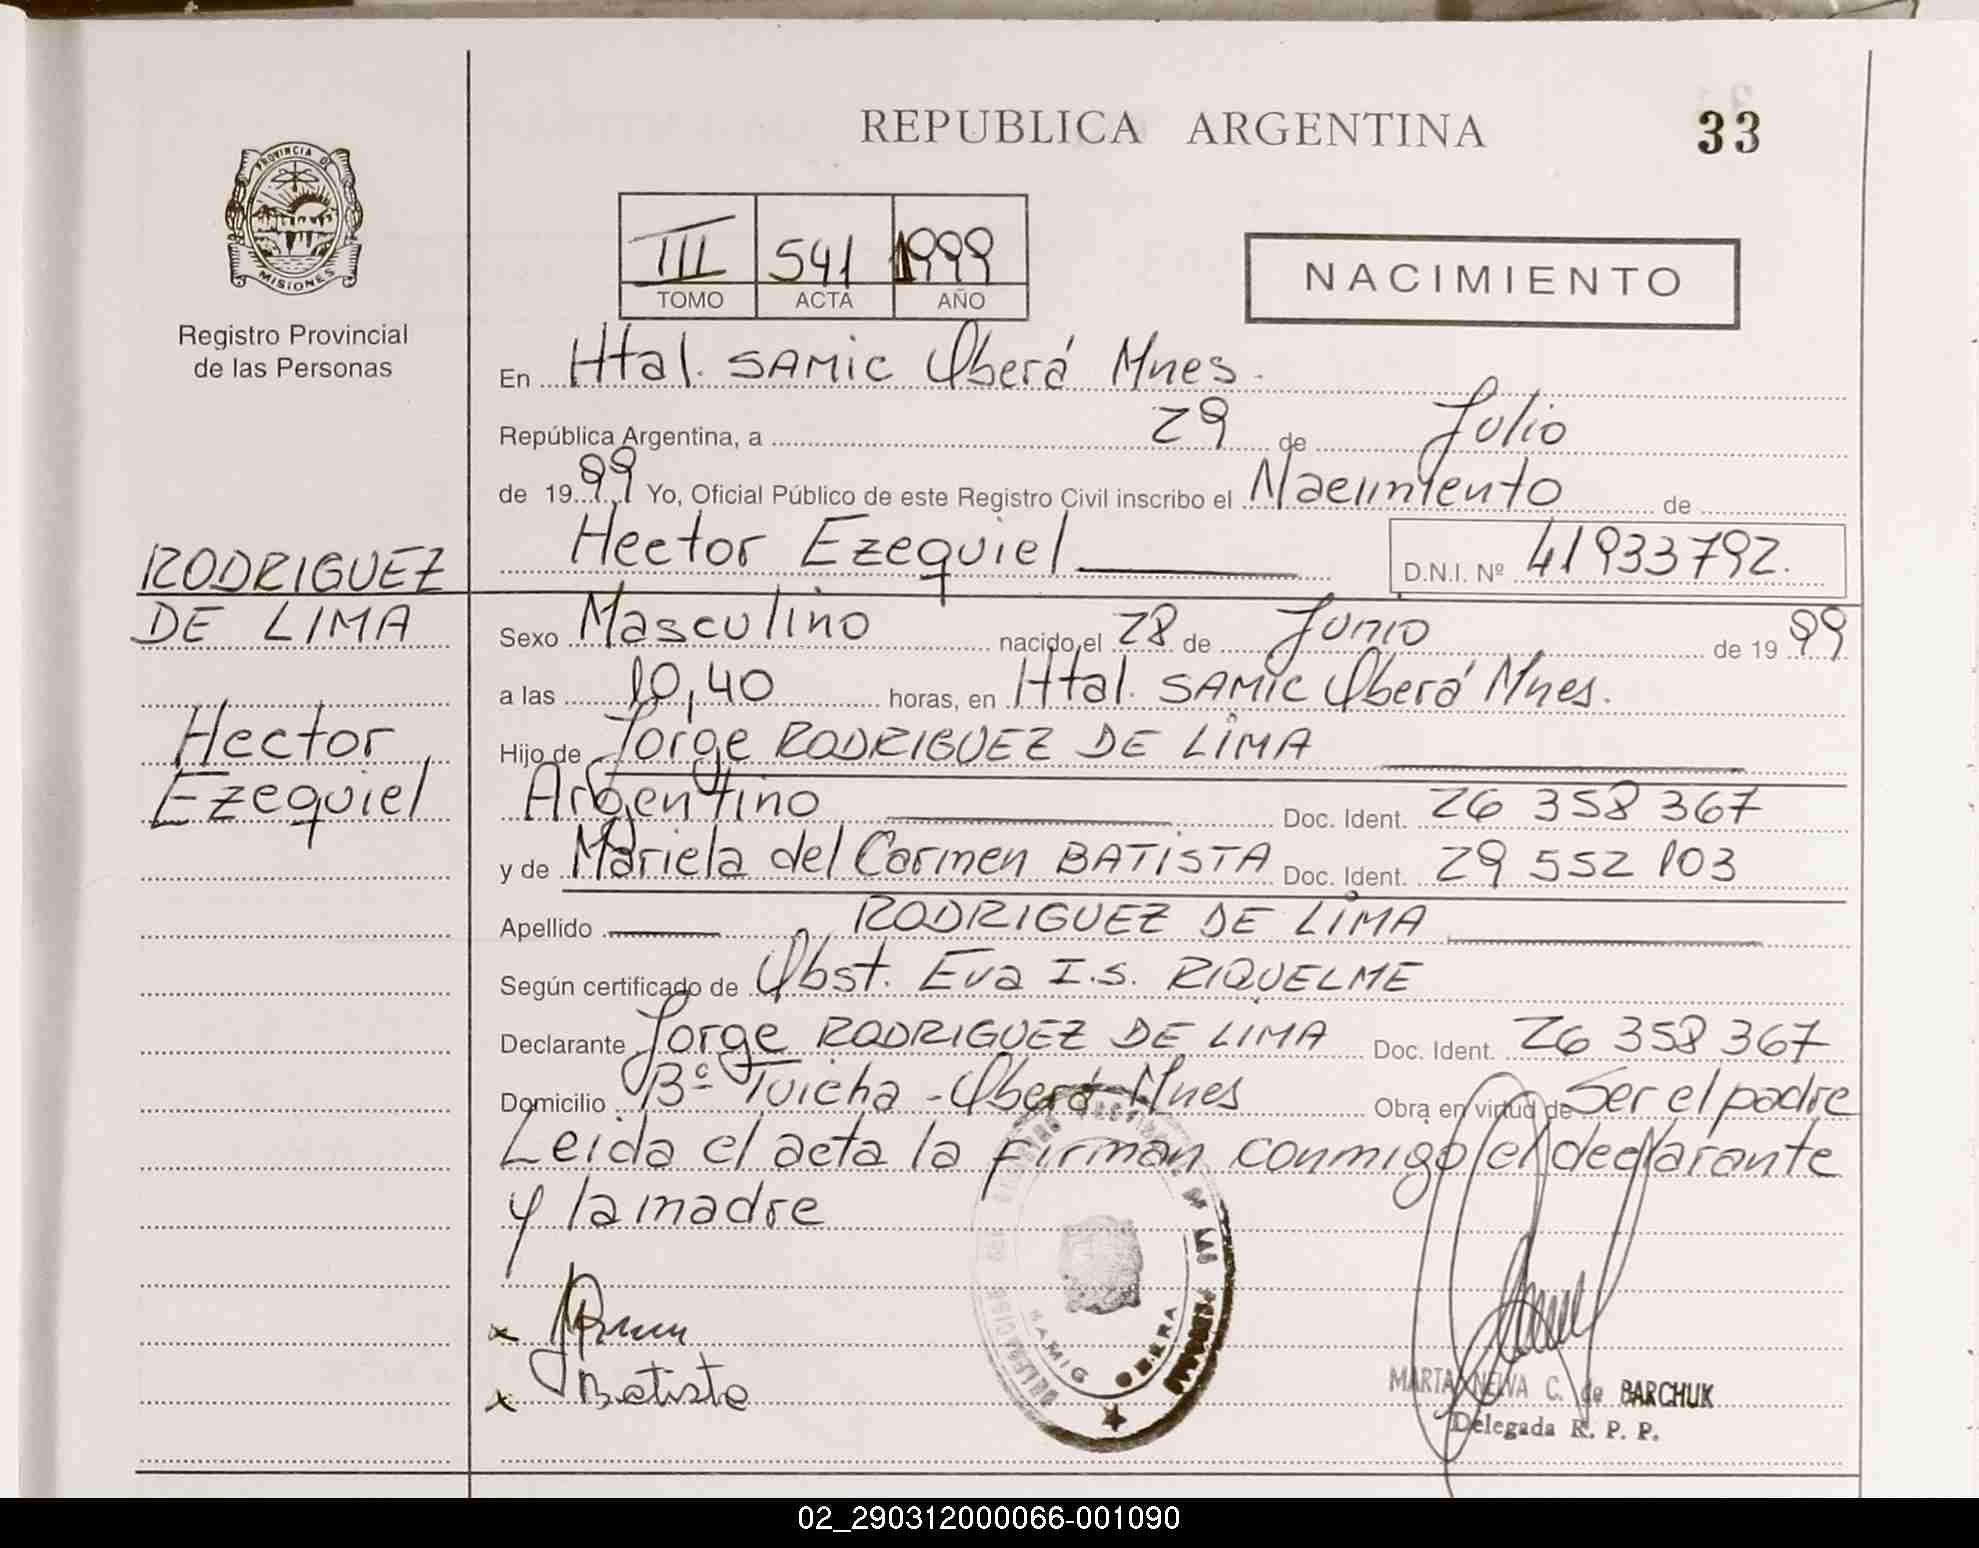 REPUBLICA ARGENTINA
33
PROVINCIA DE
MISIONES
Registro Provincial
de las Personas
III 541 1999
TOMO ACTA AÑO
NACIMIENTO
En Htal. SAMIC Oberá Mnes.
República Argentina, a 29 de Julio
de 1999 Yo, Oficial Público de este Registro Civil inscribo el Nacimiento de
Hector Ezequiel D.N.I. Nº 41933792.
RODRIGUEZ
DE LIMA
Hector
Ezequiel
Sexo Masculino nacido el 28 de Junio de 1999
a las 10,40 horas, en Htal. SAMIC Oberá Mnes.
Hijo de Jorge RODRIGUEZ DE LIMA
Argentino Doc. Ident. 26 358 367
y de Mariela del Carmen BATISTA Doc. Ident. 29 552 103
Apellido RODRIGUEZ DE LIMA
Según certificado de Obst. Eva I.S. RIQUELME
Declarante Jorge RODRIGUEZ DE LIMA Doc. Ident. 26 358 367
Domicilio Bº Tuicha - Oberá - Mnes Obra en virtud de Ser el padre
Leida el acta la firman conmigo el declarante
y la madre
x
x Batista
SAMIC OBERA
MARTA NELVA C. de BARCHUK
Delegada R. P. P.
02_290312000066-001090